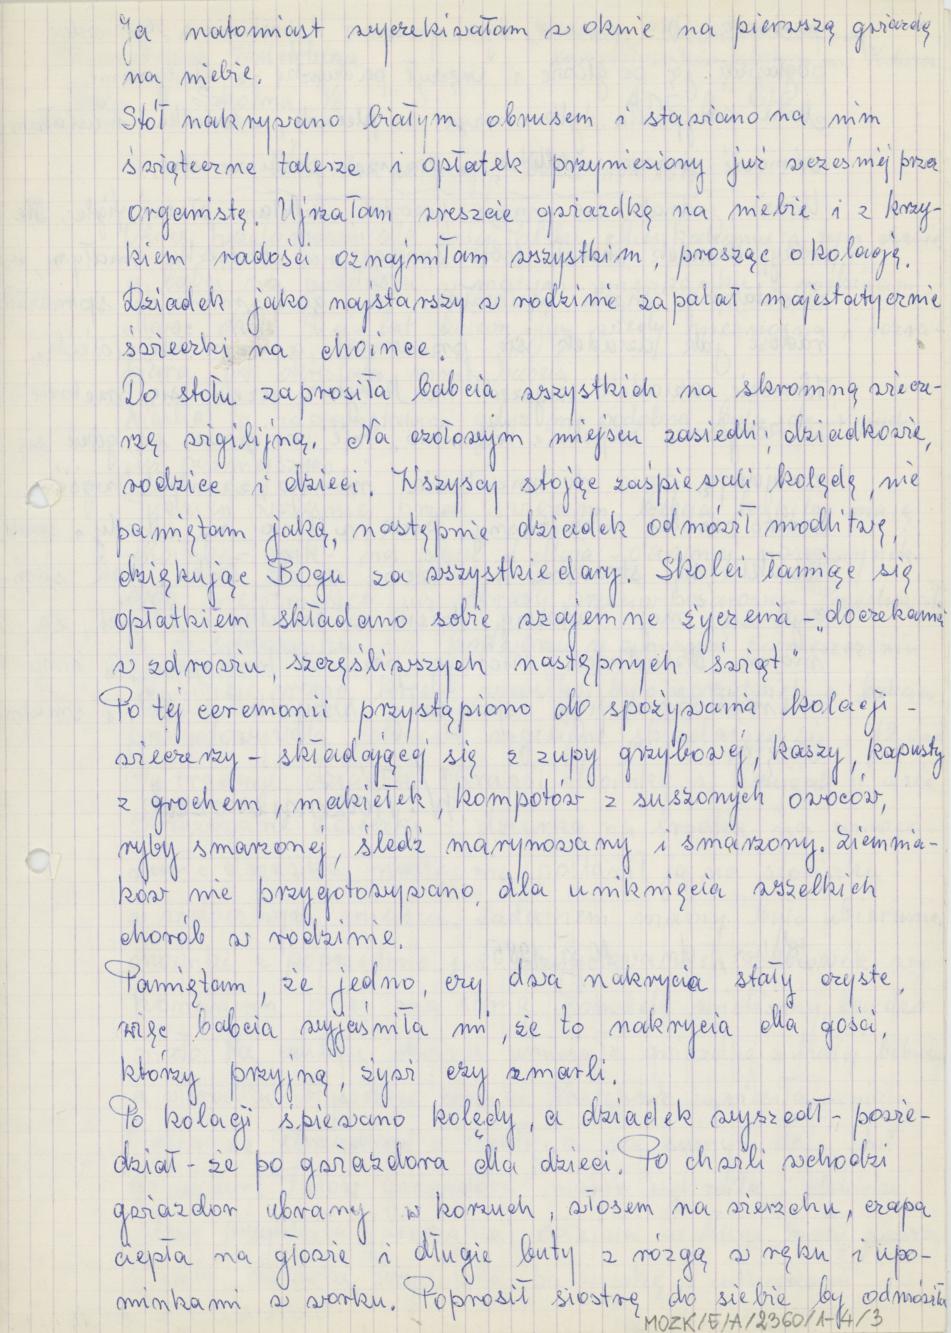 Ja natomiast wyczekiwałam w oknie na pierwszą gwiazdę
na niebie.
Stół nakrywano białym obrusem i stawiano na nim
świąteczne talerze i opłatek przyniesiony już wcześniej prze
organistę. Ujrzałam wreszcie gwiazdkę na niebie i z krzy-
kiem radości oznajmiłam wszystkim, prosząc o kolację.
Dziadek jako najstarszy w rodzinie zapalał majestatycznie
świeczki na choince.
Do stołu zaprosiła babcia wszystkich na skromną wiecze-
rzę wigilijną. Na czołowym miejscu zasiedli; dziadkowie,
rodzice i dzieci. Wszyscy stojąc zaśpiewali kolędę, nie
pamiętam jaką, następnie dziadek odmówił modlitwę,
dziękując Bogu za wszystkie dary. Skolei łamiąc się
opłatkiem składano sobie wzajemne życzenia - „doczekania
w zdrowiu, szczęśliwszych następnych świąt"
Po tej ceremonii przystąpiono do spożywania kolacji -
wieczerzy - składającej się z zupy grzybowej, kaszy, kapusty
z grochem, makiełek, kompotów z suszonych owoców,
ryby smarzonej, śledź marynowany i smarzony. Ziemnia-
ków nie przygotowywano, dla uniknięcia wszelkich
chorób w rodzinie.
Pamiętam, że jedno, czy dwa nakrycia stały czyste,
więc babcia wyjaśniła mi, że to nakrycia dla gości,
którzy przyjną, żywi czy zmarli.
Po kolacji śpiewano kolędy, a dziadek wyszedł - powie-
dział - że po gwiazdora dla dzieci. Po chwili wchodzi
gwiazdor ubrany w korzuch, włosem na wierzchu, czapa
ciepła na głowie i długie buty z rózgą w ręku i upo-
minkami w worku. Poprosił siostrę do siebie by odmówiła
MOZK/E/A/2360/1-4/3